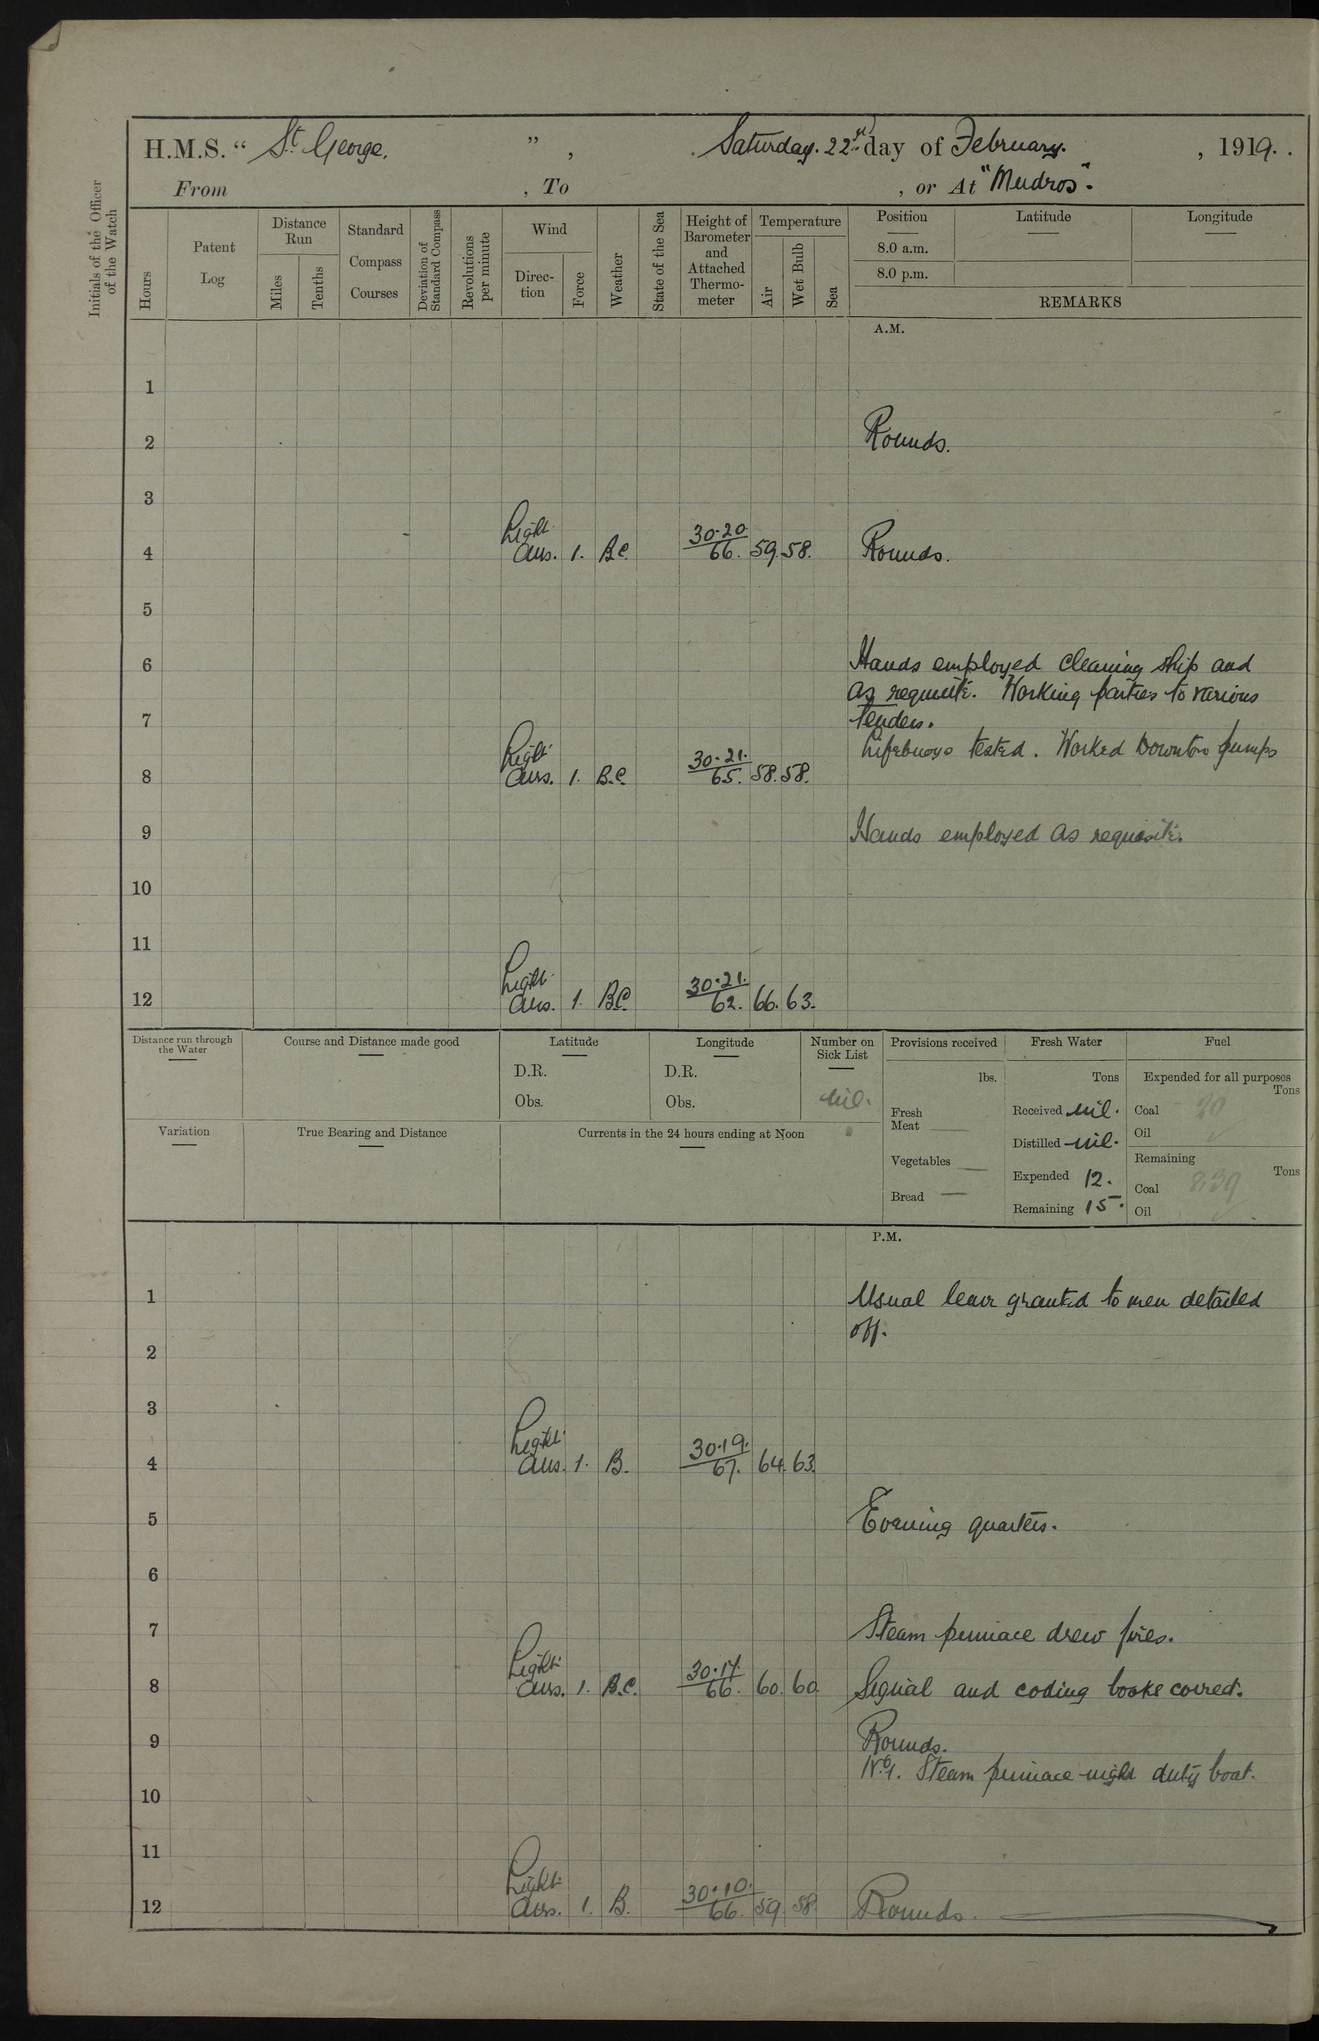 H.M.S. “ St. George. ” , Saturday. 22nd day of February. , 1919.
From , To , or At "Mudros".
Initials of the Officer of the Watch
Hours
Patent Log
Distance Run
Miles
Tenths
Standard Compass Courses
Deviation of Standard Compass
Revolutions per minute
Wind
Direc-tion
Force
Weather
State of the Sea
Height of Barometer and Attached Thermo-meter
Temperature
Air
Wet Bulb
Sea
Position Latitude Longitude
8.0 a.m.
8.0 p.m.
REMARKS
A.M.
1
2 Rounds.
3
4 Light airs. 1. B.C. 30.20 66. 59. 58. Rounds.
5
6 Hands employed cleaning ship and
as requisite. Working parties to various
7 tenders.
Lifebuoys tested. Worked Downton pumps
8 Light airs. 1. B.C. 30.21. 65. 58. 58.
9 Hands employed as requisite.
10
11
12 Light airs. 1. B.C. 30.21. 62. 66. 63.
Distance run through the Water
Course and Distance made good
Latitude
D.R.
Obs.
Longitude
D.R.
Obs.
Number on Sick List
Nil.
Provisions received
lbs.
Fresh Meat
Vegetables
Bread
Fresh Water
Tons
Received nil.
Distilled nil.
Expended 12.
Remaining 15.
Fuel
Expended for all purposes
Tons
Coal 20
Oil
Remaining
Tons
Coal 839
Oil
Variation
True Bearing and Distance
Currents in the 24 hours ending at Noon
P.M.
1 Usual leave granted to men detailed
off.
2
3
4 Light airs. 1. B. 30.19. 67. 64. 63.
5 Evening quarters.
6
7 Steam pinnace drew fires.
8 Light airs. 1. B.C. 30.17. 66. 60. 60. Signal and coding books correct.
9 Rounds.
No 1. Steam pinnace night duty boat.
10
11
12 Light airs. 1. B. 30.10. 66. 59. 58. Rounds.